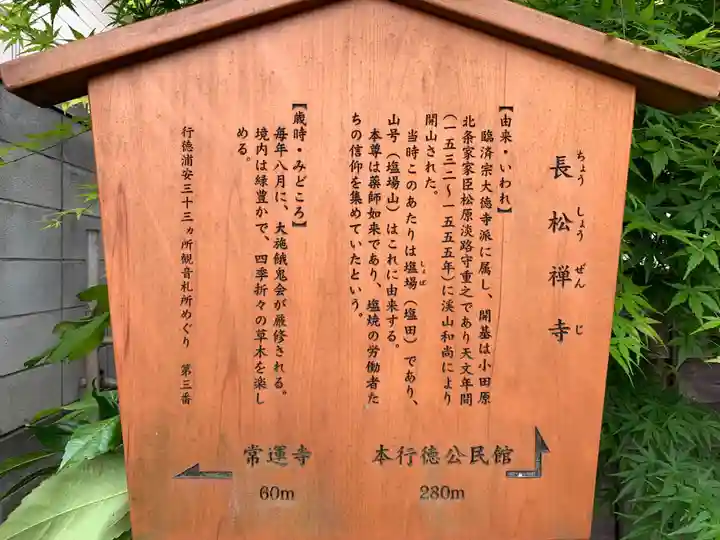 長松禅寺
ちょう しょう ぜん じ
【由来・いわれ】
臨済宗大徳寺派に属し、開基は小田原
北条家家臣松原淡路守重之であり天文年間
(一五三二~一五五五年)に渓山和尚により
開山された。
当時このあたりは塩場(塩田)であり、
しょば
山号(塩場山)はこれに由来する。
本尊は薬師如来であり、塩焼の労働者た
ちの信仰を集めていたという。
【歳時・みどころ】
毎年八月に、大施餓鬼会が厳修される。
境内は緑豊かで、四季折々の草木を楽し
める。
行徳浦安三十三ヵ所観音札所めぐり 第三番
本行徳公民館
280m
常運寺
60m